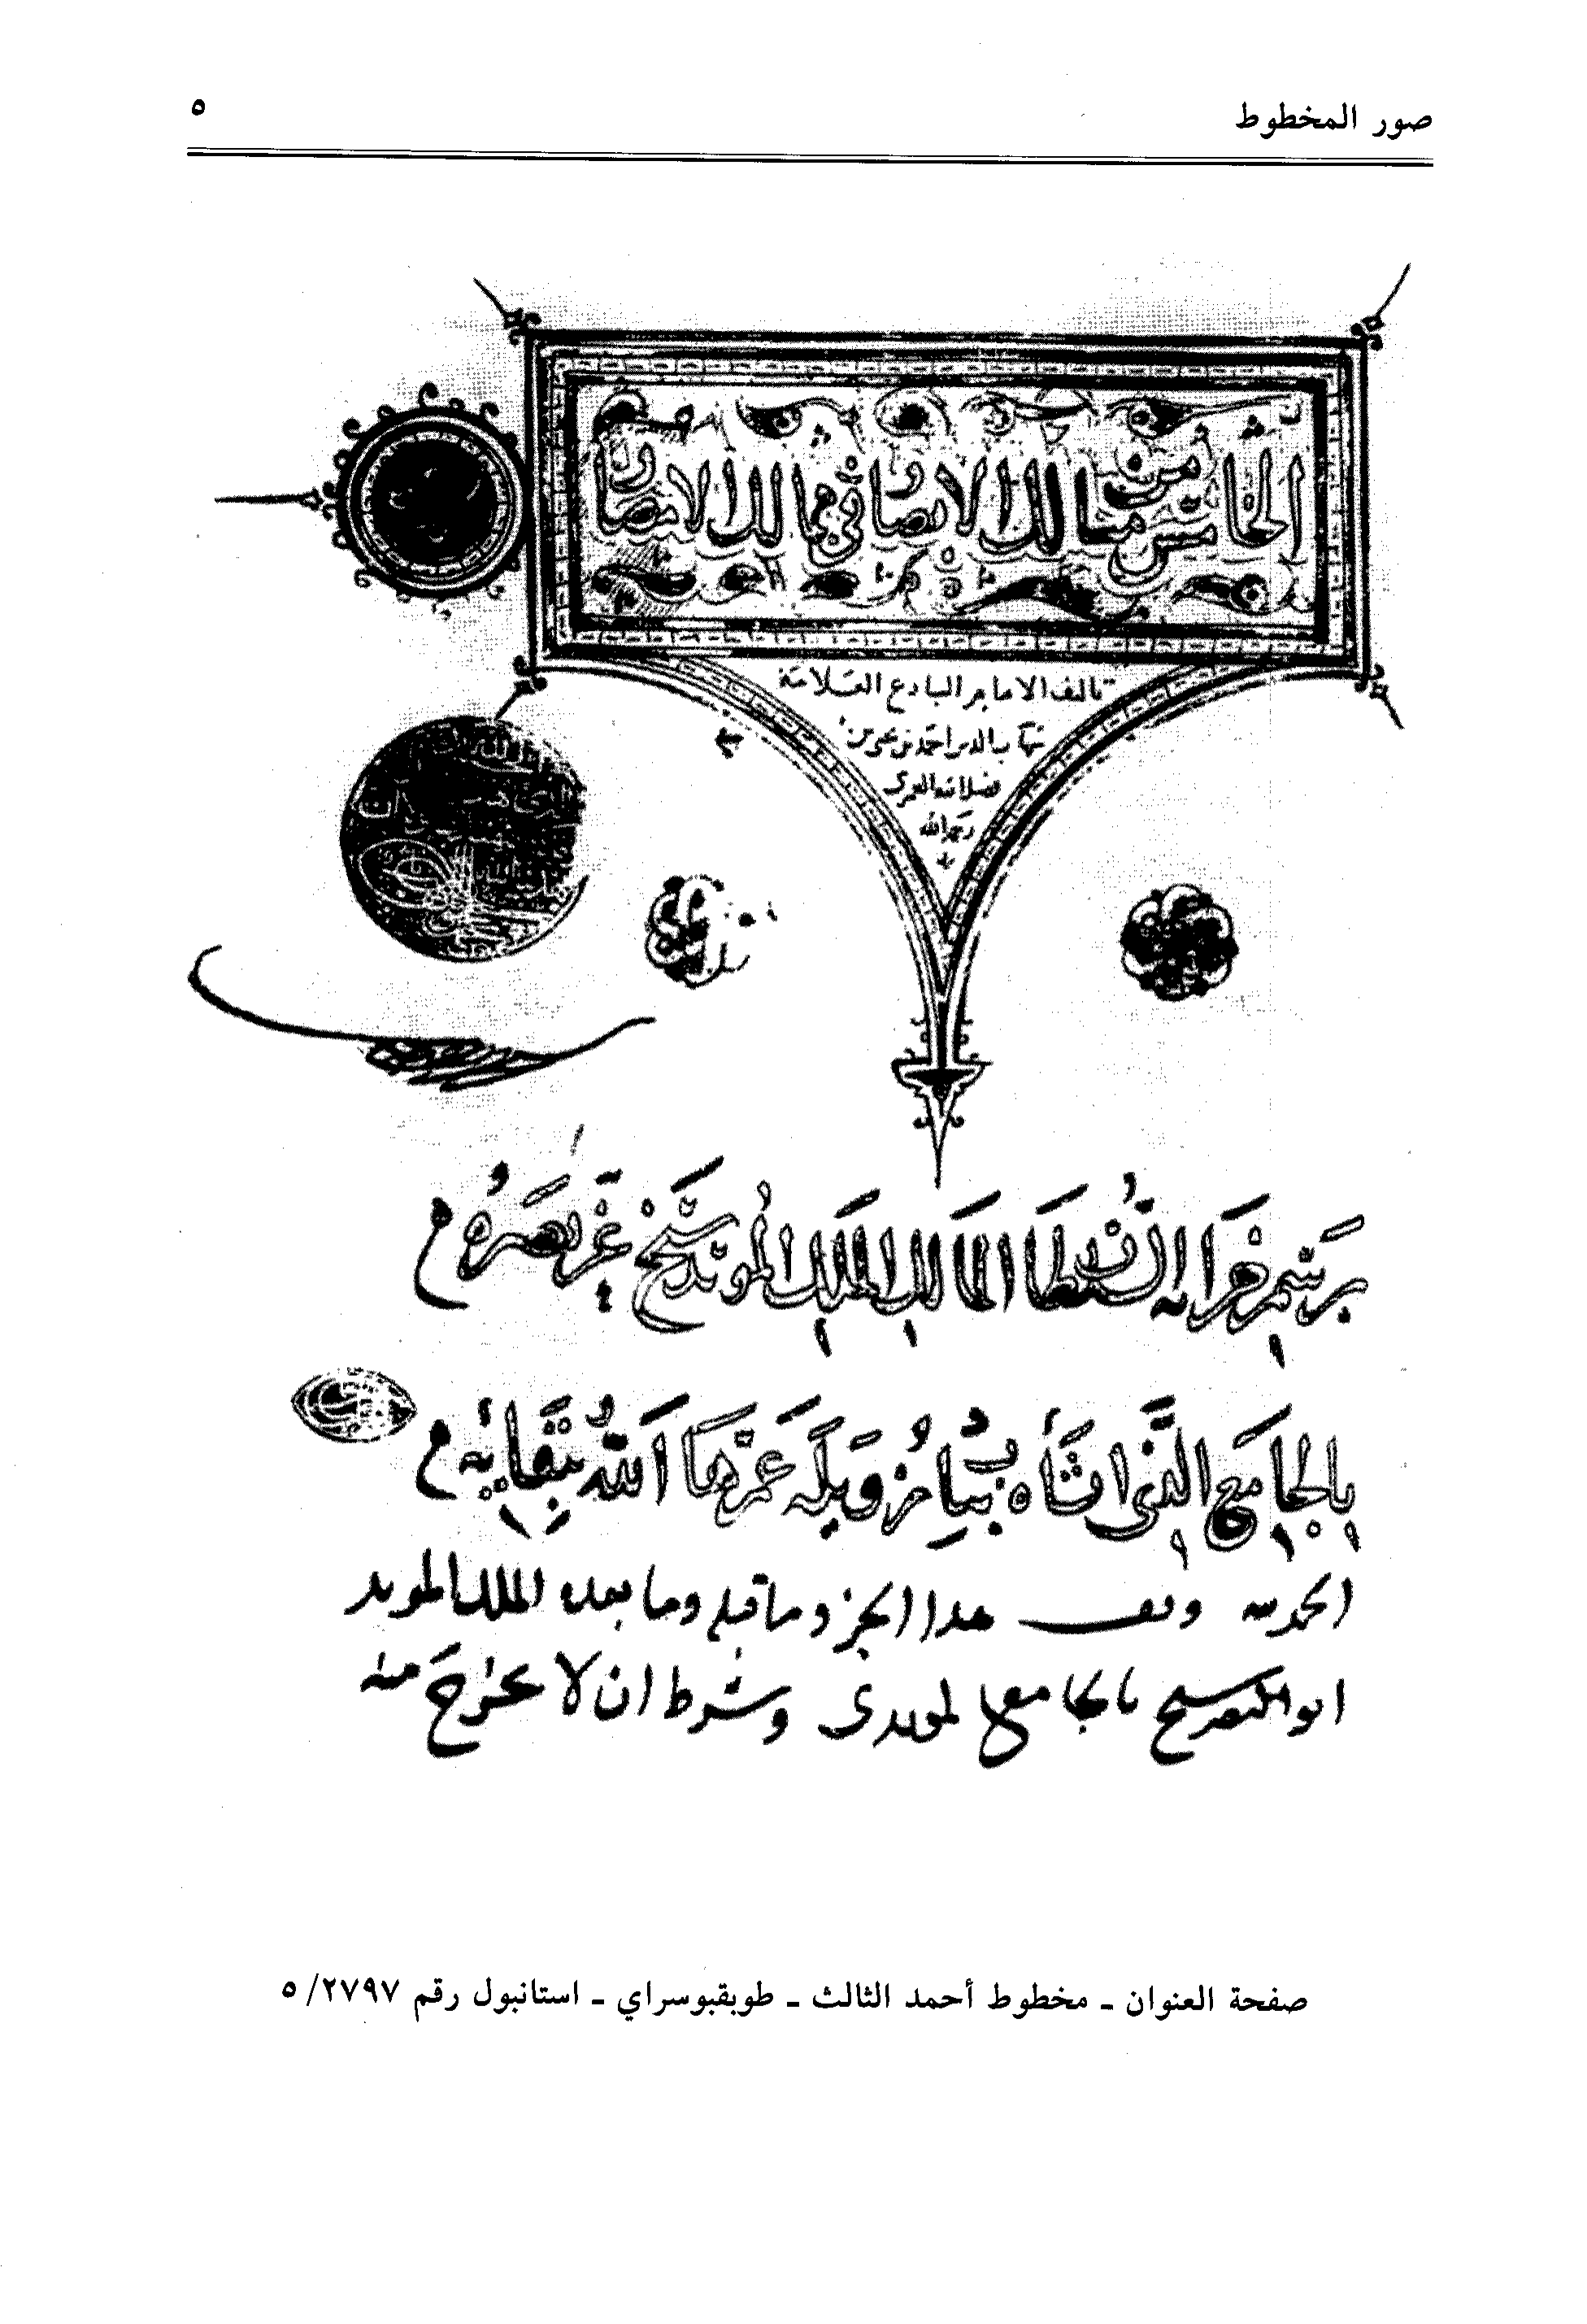 صور المخطوط
٥
الخامس من مسالك الابصار في ممالك الامصار
تاليف الامام البارع العلامة
شهاب الدين احمد بن يحيى بن
فضل الله العمري
رحمه الله
برسم خزانة السلطان المالك الملك المؤيد شيخ عز نصره
بالجامع الذي انشاه بباب زويلة عمرها الله ببقايه
الحمد لله وقف هذا الجز وما قبله وما بعده الملك المويد
ابو النصر شيخ بالجامع المويدى وشرط ان لا يخرج منه
صفحة العنوان ـ مخطوط أحمد الثالث ـ طوبقبوسراي ـ استانبول رقم ٢٧٩٧/٥